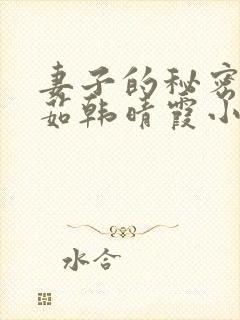 妻子的秘密
茹韩晴霞小
水合